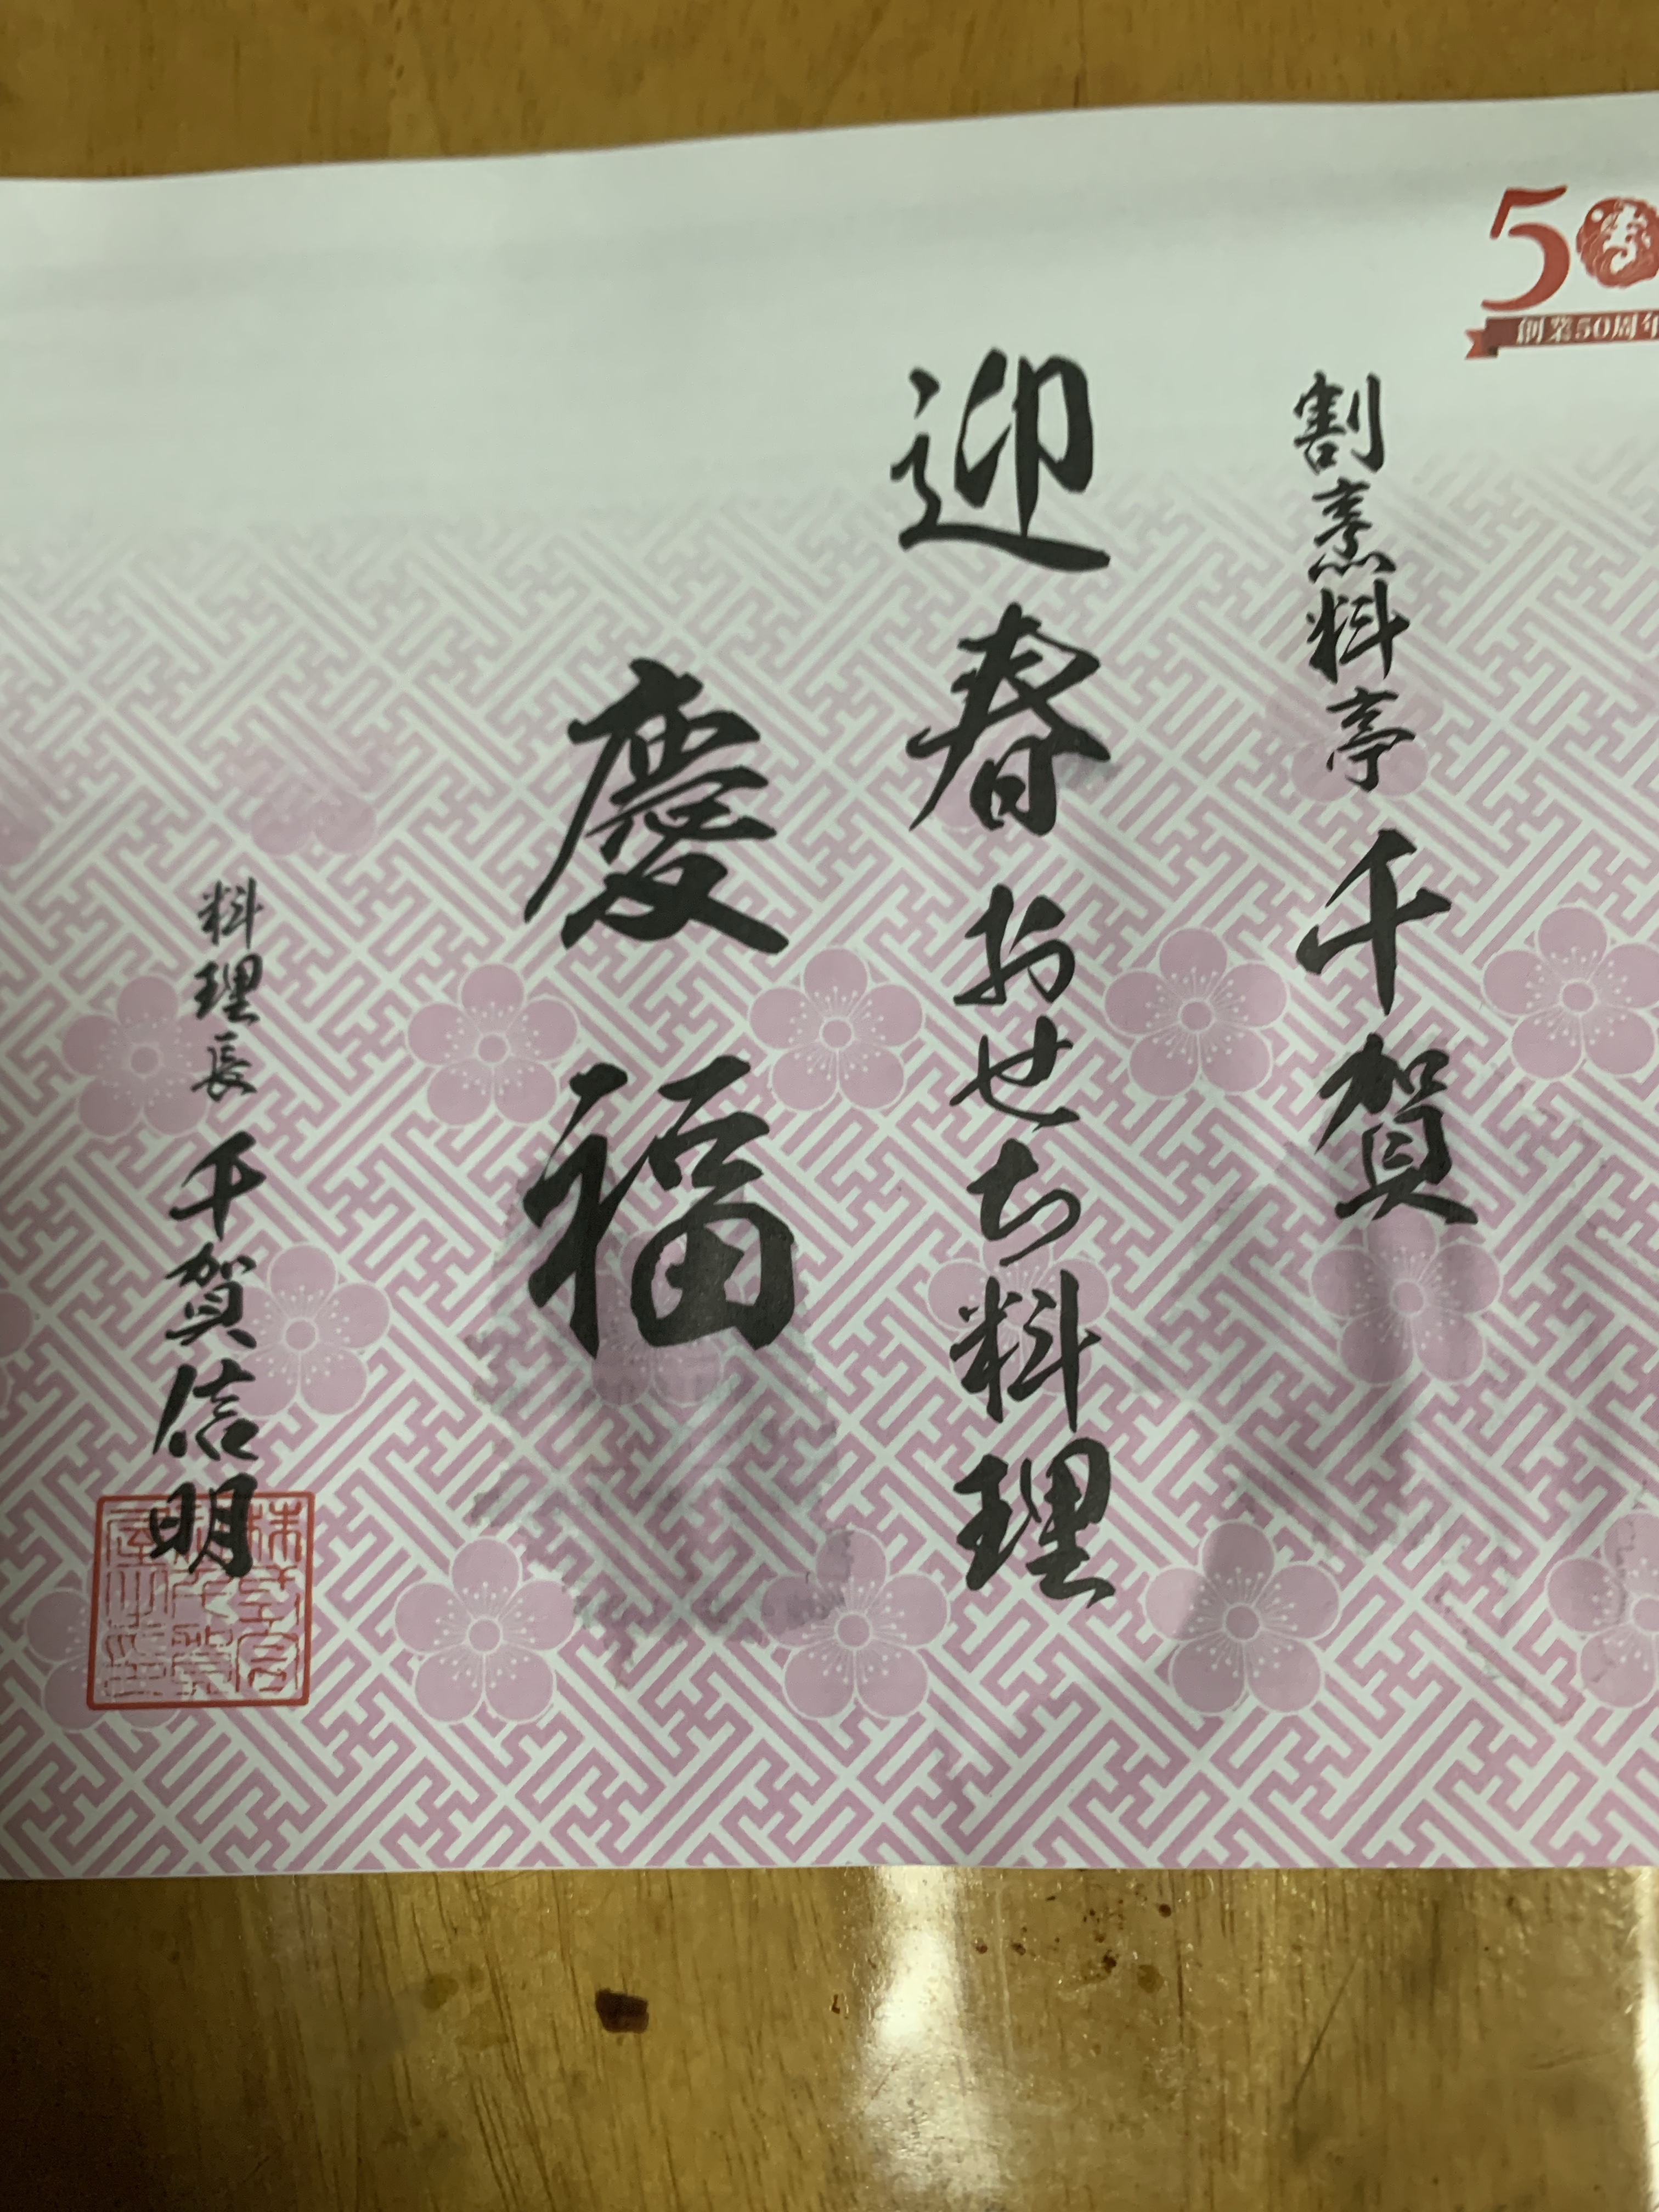 50
創業50周年
割烹料亭 千賀
迎春おせち料理
慶福
料理長 千賀信明